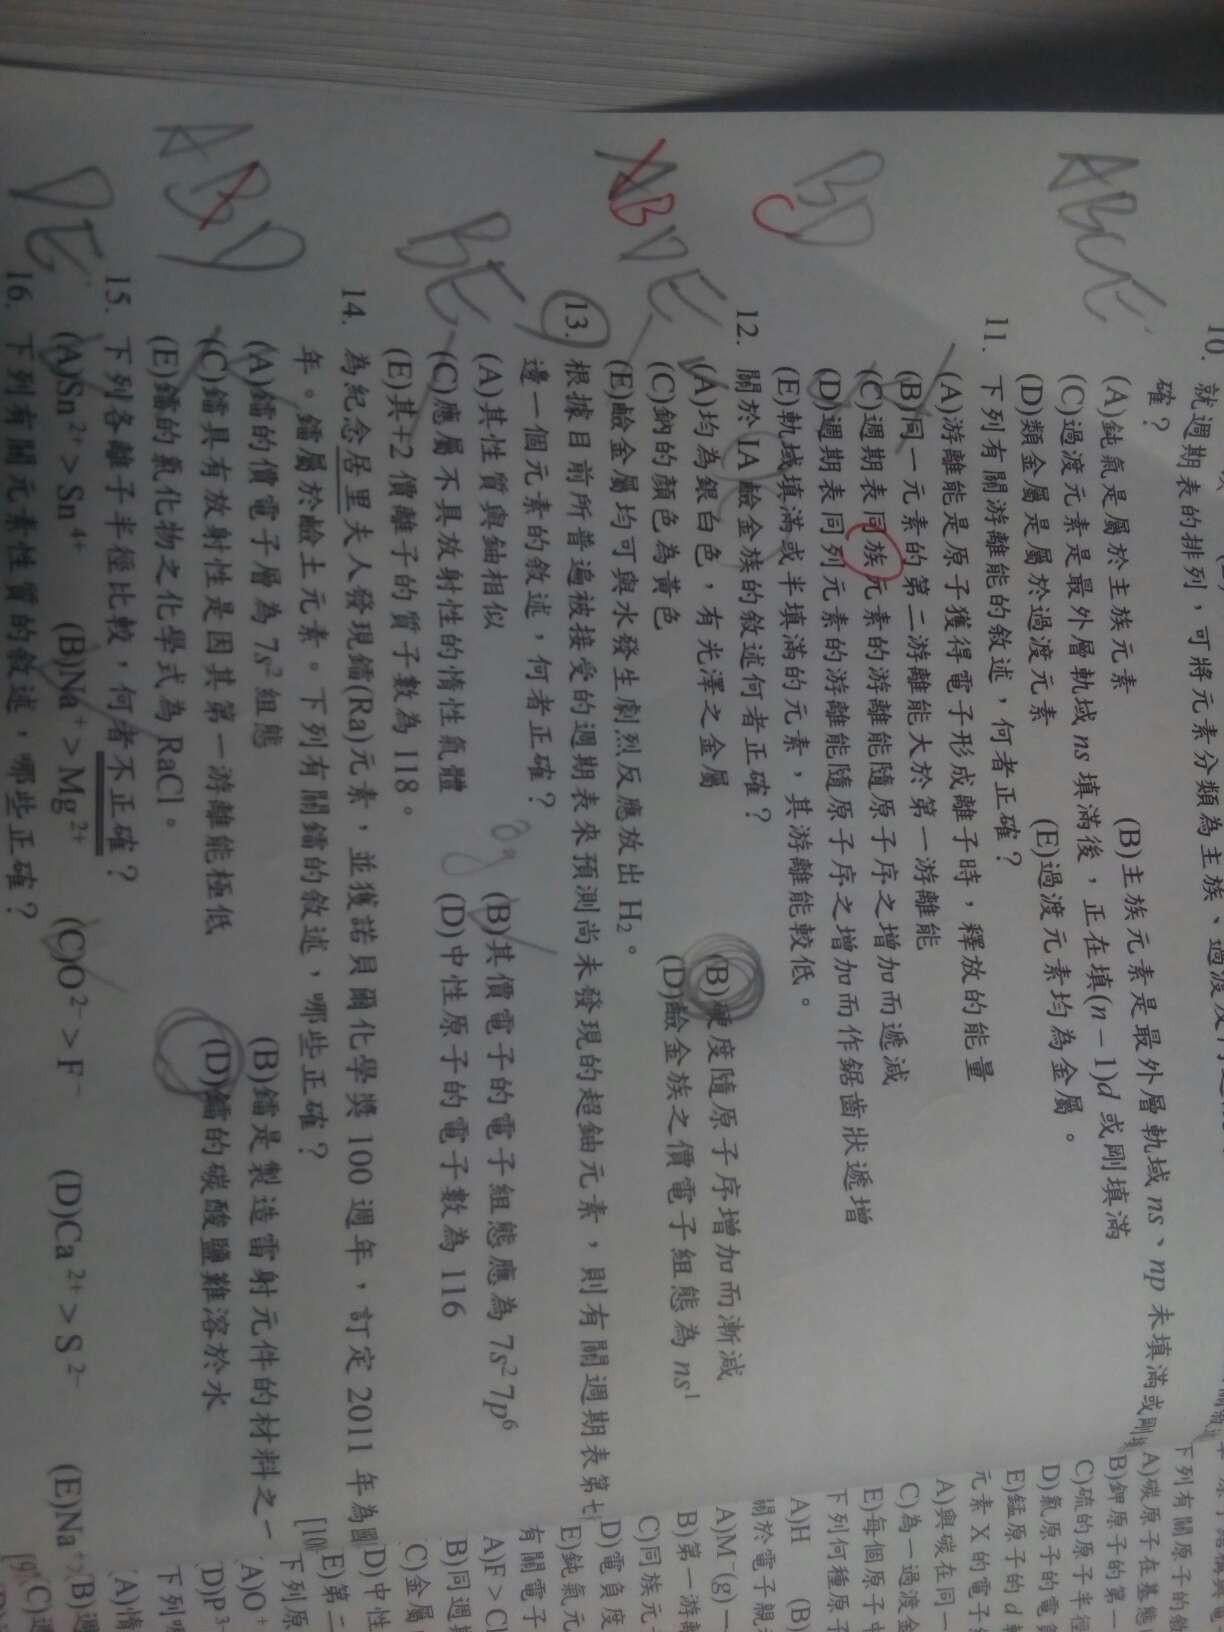 10. 就週期表的排列,可將元素分類為主族、過渡
確?
(A)鈍氣是屬於主族元素 (B)主族元素是最外層軌域 ns、np 未填滿或剛
(C)過渡元素是最外層軌域 ns 填滿後,正在填(n−1)d 或剛填滿
(D)類金屬是屬於過渡元素 (E)過渡元素均為金屬。
ABCE
11. 下列有關游離能的敘述,何者正確?
(A)游離能是原子獲得電子形成離子時,釋放的能量
(B)同一元素的第二游離能大於第一游離能
(C)週期表同族元素的游離能隨原子序之增加而遞減
(D)週期表同列元素的游離能隨原子序之增加而作鋸齒狀遞增
(E)軌域填滿或半填滿的元素,其游離能較低。
BD
C
12. 關於 IA 鹼金族的敘述何者正確?
(A)均為銀白色,有光澤之金屬 (B)硬度隨原子序增加而漸減
(C)鈉的顏色為黃色 (D)鹼金族之價電子組態為 ns¹
(E)鹼金屬均可與水發生劇烈反應放出 H₂。
ABDE
13. 根據目前所普遍被接受的週期表來預測尚未發現的超鈾元素,則有關週期表第七
邊一個元素的敘述,何者正確?
(A)其性質與鈾相似 (B)其價電子的電子組態應為 7s²7p⁶
(C)應屬不具放射性的惰性氣體 (D)中性原子的電子數為 116
(E)其+2 價離子的質子數為 118。
BE
14. 為紀念居里夫人發現鐳(Ra)元素,並獲諾貝爾化學獎 100 週年,訂定 2011 年為
年。鐳屬於鹼土元素。下列有關鐳的敘述,哪些正確?
(A)鐳的價電子層為 7s² 組態 (B)鐳是製造雷射元件的材料之一
(C)鐳具有放射性是因其第一游離能極低 (D)鐳的碳酸鹽難溶於水
(E)鐳的氯化物之化學式為 RaCl。
ABD
15. 下列各離子半徑比較,何者不正確?
(A)Sn²⁺>Sn⁴⁺ (B)Na⁺>Mg²⁺ (C)O²⁻>F⁻ (D)Ca²⁺>S²⁻ (E)Na⁺
DE
16. 下列有關元素性質的敘述,哪些正確?
下列有關原子的
A)碳原子在基態
B)鉀原子的第一
C)硫的原子半徑
D)氯原子的電
E)錳原子的 d
元素 X 的電子
A)與碳在同一
C)為一過渡金
E)每個原子中
下列何種原子
A)H (B)
關於電子親
A)M⁻(g)
B)第一游離
C)同族元
D)電負度
E)鈍氣元
有關電子
A)F>Cl
B)同週期
C)金屬
D)中性
E)第二
下列原
A)O⁺
D)P³⁻
下列
(A)惰
B)週